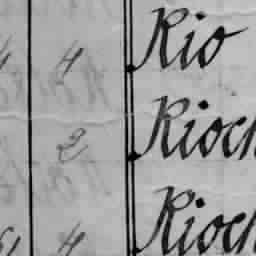 4 Rio
2 Rioch
4 Rioch